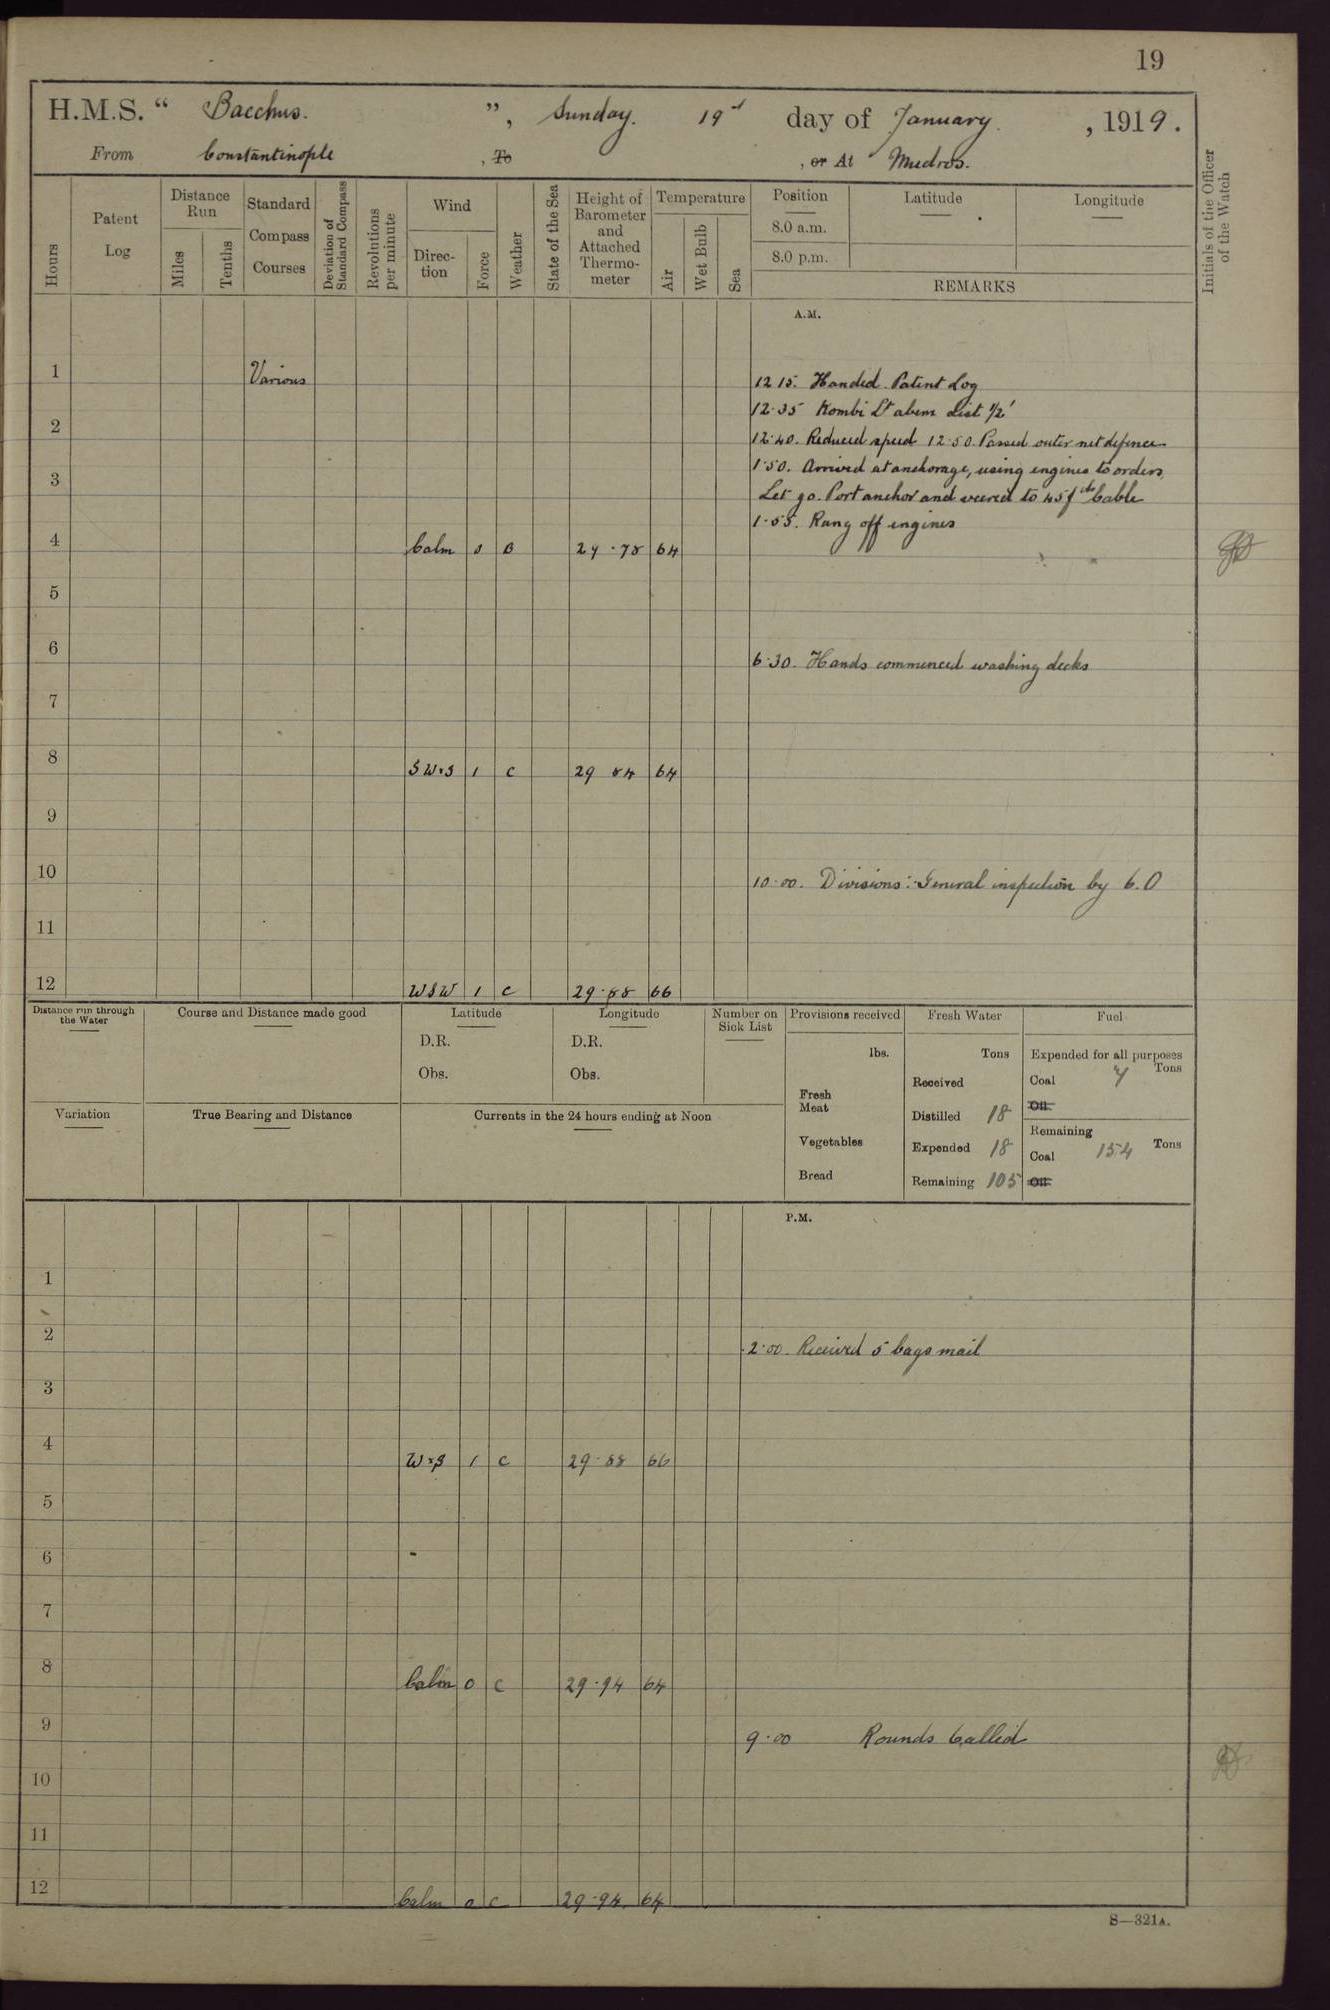 19
H.M.S. “ Bacchus. ”, Sunday. 19 day of January. , 1919.
From Constantinople , To , or At Mudros.
Hours
Patent Log
Distance Run
Miles
Tenths
Standard Compass Courses
Deviation of Standard Compass
Revolutions per minute
Wind
Direction
Force
Weather
State of the Sea
Height of Barometer and Attached Thermometer
Temperature
Air
Wet Bulb
Sea
Position
8.0 a.m.
8.0 p.m.
Latitude
Longitude
REMARKS
Initials of the Officer of the Watch
A.M.
1 Various 12 15. Handed Patent Log
12·35 Kombi Lt abem dist 1/2'
2 12·40. Reduced speed 12·50. Passed outer net defence
1·50. Arrived at anchorage, using engines to orders.
3 Let go. Port anchor and veered to 45 fths Cable
1·55. Rang off engines
4 Calm 0 B 29·78 64
5
6 6·30. Hands commenced washing decks
7
8 SW×S 1 C 29 84 64
9
10 10·00. Divisions: General inspection by C.O
11
12 WSW 1 C 29·88 66
Distance run through the Water
Course and Distance made good
Latitude
D.R.
Obs.
Longitude
D.R.
Obs.
Number on Sick List
Provisions received
lbs.
Fresh Meat
Vegetables
Bread
Fresh Water
Tons
Received
Distilled 18
Expended 18
Remaining 105
Fuel
Expended for all purposes
Tons
Coal 7
Oil
Remaining
Coal 154 Tons
Oil
Variation
True Bearing and Distance
Currents in the 24 hours ending at Noon
P.M.
1
2 2·00. Received 5 bags mail
3
4 W×S 1 C 29·88 66
5
6
7
8 Calm 0 C 29·94 64
9 9·00 Rounds Called
10
11
12 Calm 0 C 29·94 64
S—321A.